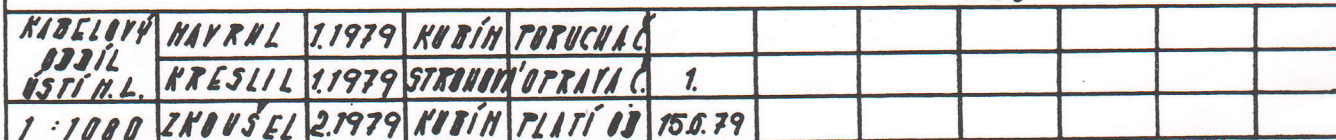 KABELOVÝ
ODDÍL
ÚSTÍ N.L.
1 : 1000
NAVRHL 1.1979 KUBÍN PORUCHA Č.
KRESLIL 1.1979 OPRAVA Č. 1.
ZKOUŠEL 2.1979 KUBÍN PLATÍ OD 15.6.79